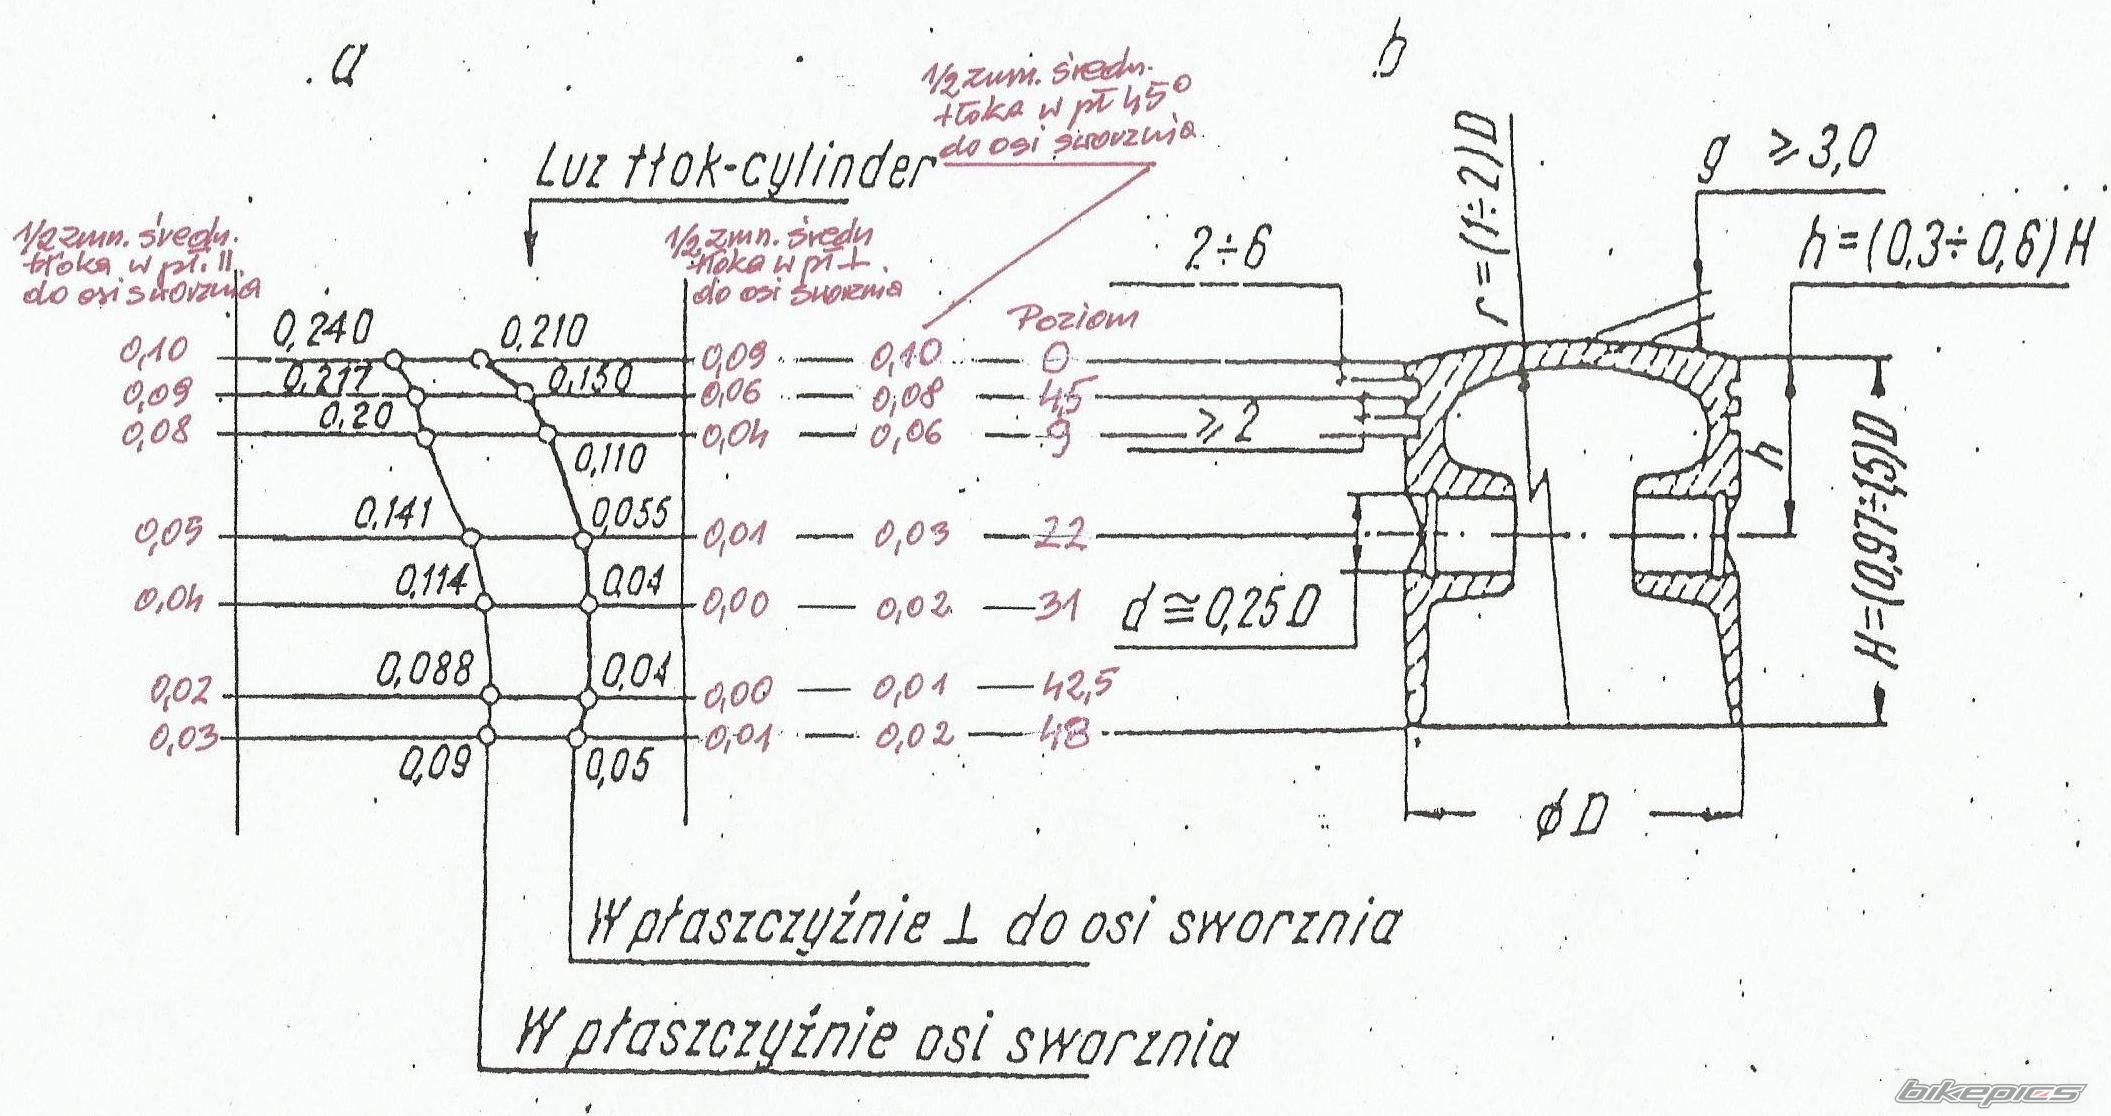 a
b
1/2 zmn. średn.
tłoka w pł 45°
do osi sworznia
Luz tłok-cylinder
g ≥ 3,0
r = (1÷2)D
1/2 zmn. średn.
tłoka w pł. II
do osi sworznia
1/2 zmn. średn
tłoka w pł ⊥.
do osi sworznia
2÷6
h = (0,3÷0,6)H
Poziom
0,10 0,240 0,210 0,09 — 0,10 — 0
0,09 0,217 0,150 0,06 — 0,08 — 4,5
0,08 0,20 0,110 0,04 — 0,06 — 9
≥ 2
h
H = (0,97÷1,5)D
0,05 0,141 0,055 0,01 — 0,03 — 22
0,04 0,114 0,04 0,00 — 0,02 — 31
d ≅ 0,25D
0,02 0,088 0,04 0,00 — 0,01 — 42,5
0,03 0,09 0,05 0,01 — 0,02 — 48
ϕD
W płaszczyźnie ⊥ do osi sworznia
W płaszczyźnie osi sworznia
bikepics